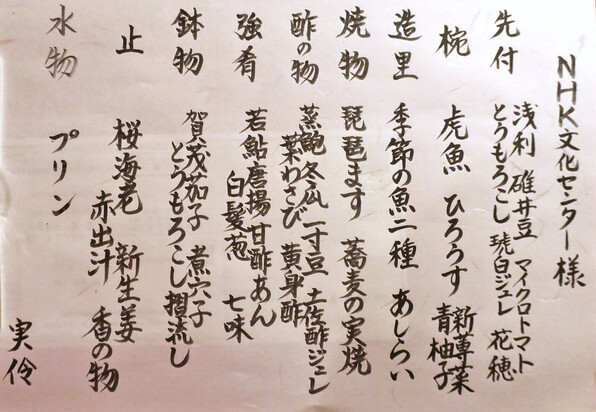 NHK文化センター様
先付 浅利 碓井豆 マイクロトマト
とうもろこし 琥珀ジュレ 花穂
椀 虎魚 ひろうす 新蓴菜
青柚子
造里 季節の魚二種 あしらい
焼物 琵琶ます 蕎麦の実焼
酢の物 蒸鮑 冬瓜 一寸豆 土佐酢ジュレ
葉わさび 黄身酢
強肴 若鮎唐揚 甘酢あん
白髪葱 七味
鉢物 賀茂茄子 煮穴子
とうもろこし摺流し
止 桜海老 新生姜
赤出汁 香の物
水物 プリン
実伶